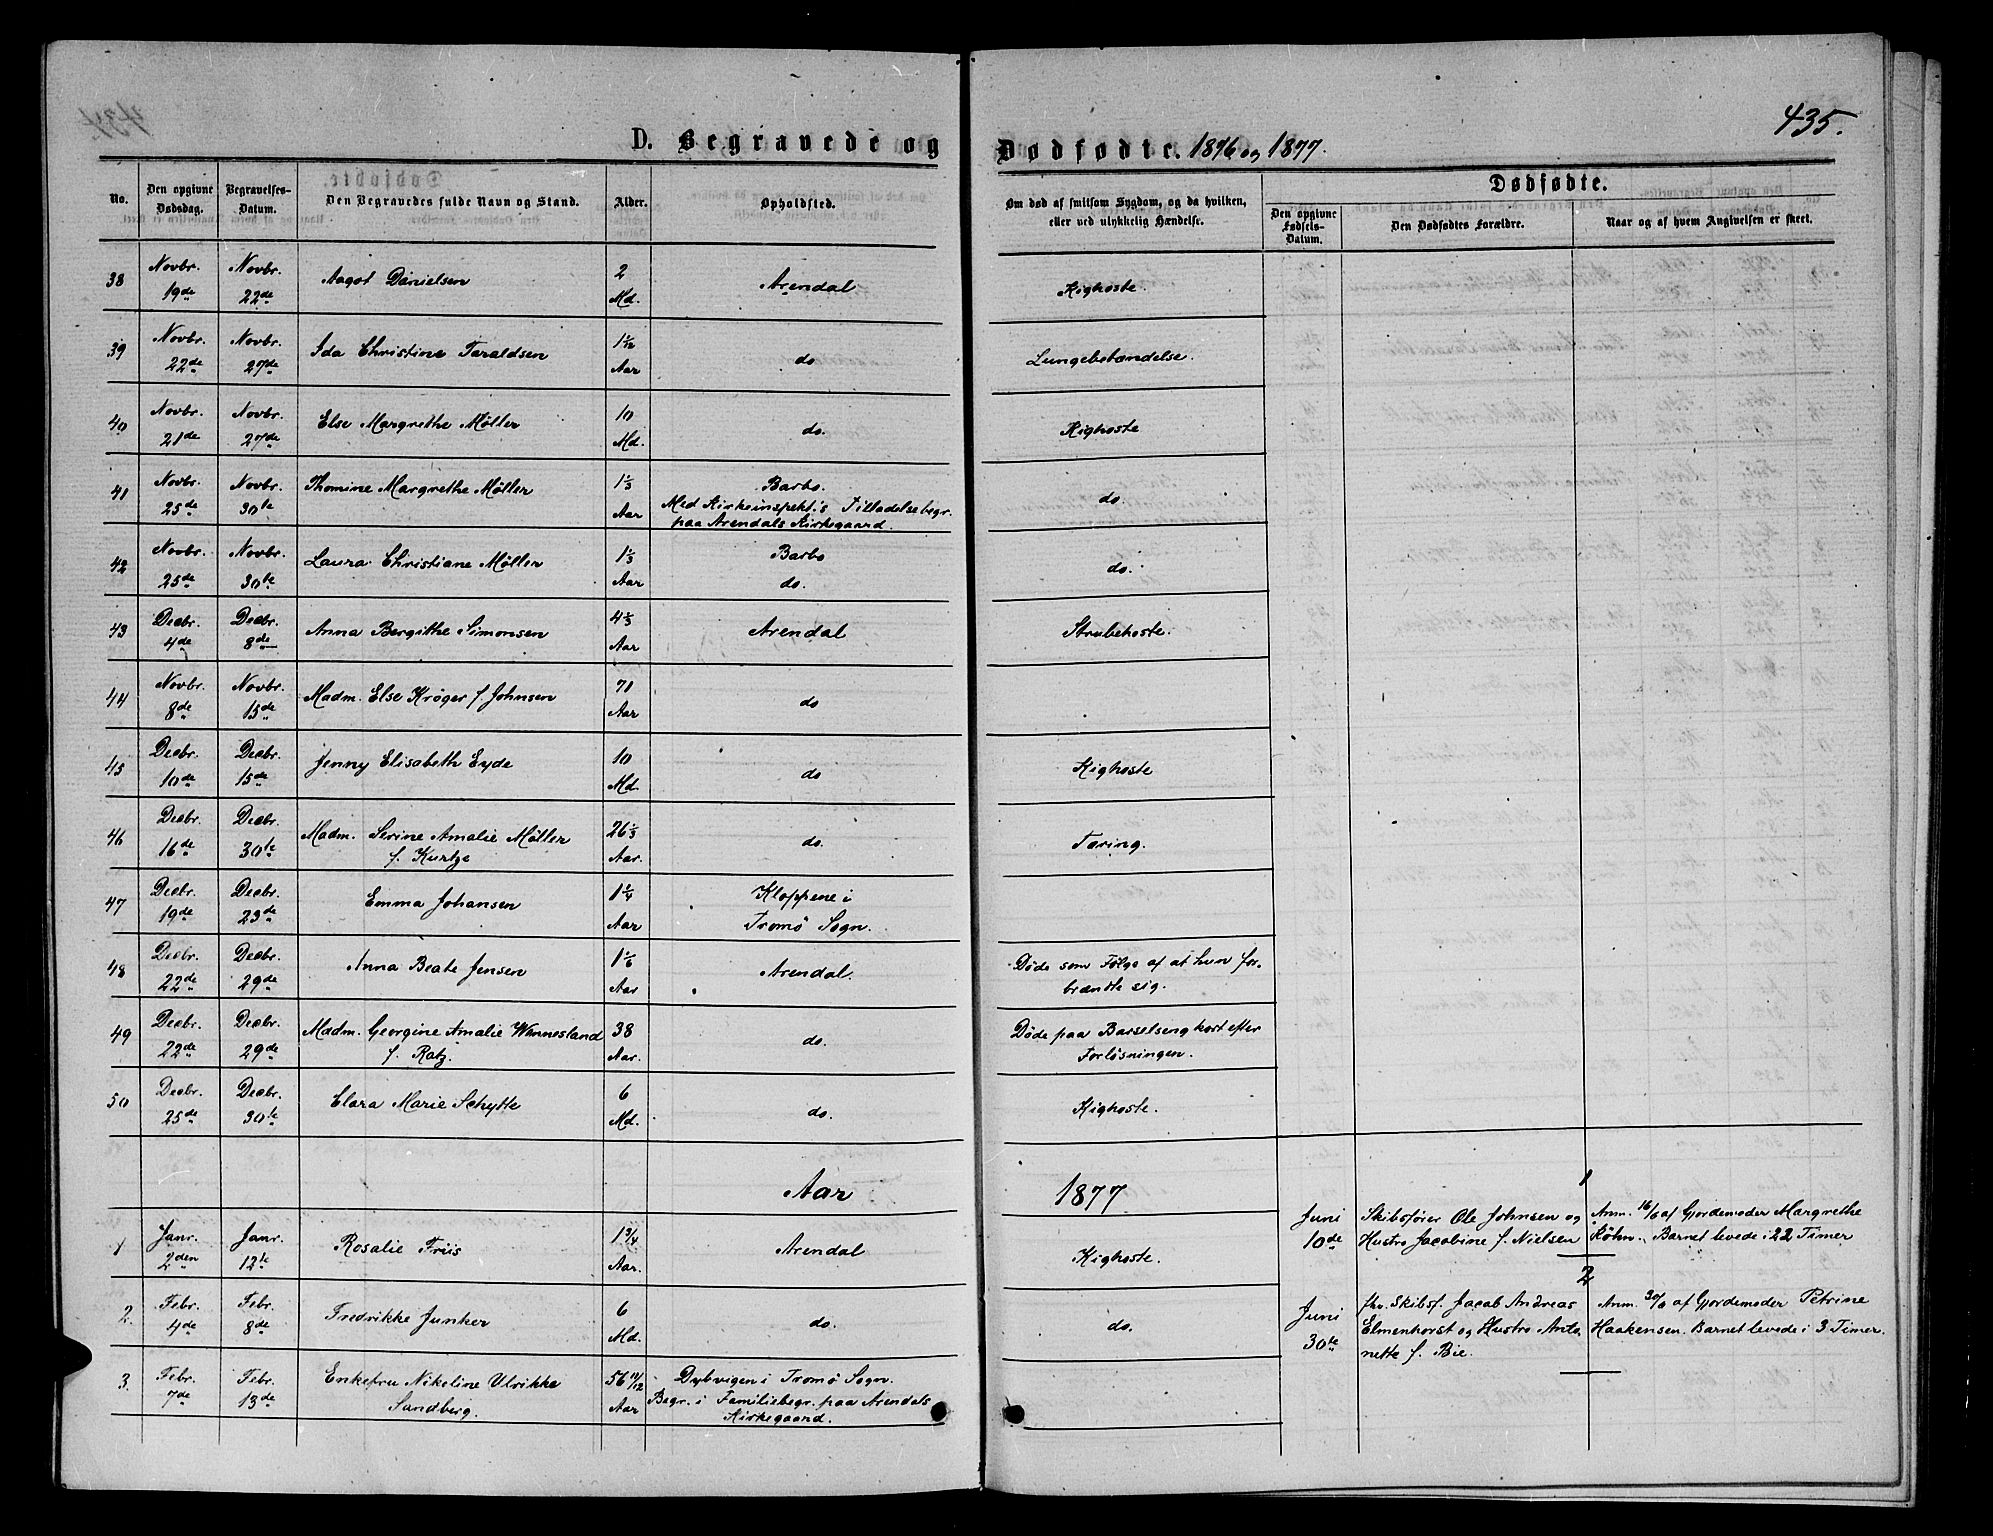 435.
D. Begravede og Dødfødte. 1876 og 1877.
No. | Den opgivne Dødsdag. | Begravelses-Datum. | Den Begravedes fulde Navn og Stand. | Alder. | Opholdsted. | Om død af smitsom Sygdom, og da hvilken, eller ved ulykkelig Hændelse. | Dødfødte.
Den opgivne Fødsels-Datum. | Den Dødfødtes Forældre. | Naar og af hvem Angivelsen er skeet.
38 | Novbr. 19de | Novbr. 22de | Aagot Danielsen | 2 Md. | Arendal | Kighoste.
39 | Novbr. 22de | Novbr. 27de | Ida Christine Taraldsen | 1 1/12 Aar | do | Lungebetændelse.
40 | Novbr. 21de | Novbr. 27de | Else Margrethe Møller | 10 Md. | do. | Kighoste
41 | Novbr. 25de | Novbr. 30te | Thomine Margrethe Møller | 1 1/3 Aar | Barbo.
Med Kirkeinspekt:s Tilladelse begr.
paa Arendals Kirkegaard. | do.
42 | Novbr. 25de | Novbr. 30te | Laura Christiane Møller | 1 1/3 Aar | Barbo do. | do.
43 | Decbr. 4de | Decbr. 8de | Anna Bergithe Simonsen | 4 1/3 Aar | Arendal | Strubehoste.
44 | Novbr. 8de | Novbr. 15de | Madm. Else Krøger f. Johnsen | 71 Aar | do
45 | Decbr. 10de | Decbr. 15de | Jenny Elisabeth Eyde | 10 Md. | do | Kighoste
46 | Decbr. 16de | Decbr. 30te | Madm. Serine Amalie Møller
f. Kurtze | 26 1/3 Aar. | do. | Tæring.
47 | Decbr. 19de | Decbr. 23de | Emma Johansen | 1 1/4 Aar | Kloppene i
Tromø Sogn.
48 | Decbr. 22de | Decbr. 29de | Anna Beate Jensen | 1 1/6 Aar | Arendal. | Døde som Følge af at hun for-
brændte sig.
49 | Decbr. 22de | Decbr. 29de | Madm. Georgine Amalie Wennesland
f. Ratz. | 38 Aar. | do. | Døde paa Barselseng kort efter
Forløsningen.
50 | Decbr. 25de | Decbr. 30te | Clara Marie Schytte | 6 Md. | do. | Kighoste.
Aar 1877
1 | Janr. 2den | Janr. 12te | Rosalie Friis | 1 3/4 Aar. | Arendal | Kighoste.
1
Juni 10de | Skibsfører Ole Johnsen og
Hustro Jacobine f. Nielsen | Anm. 16/6 af Gjordemoder Margrethe
Røhn. Barnet levede i 22 Timer
2. | Febr. 4de | Febr. 8de | Fredrikke Junker | 6 Md. | do. | do.
2
Juni 30te | fhv. Skibsf. Jacob Andreas
Elmenhorst og Hustro Anto
nette f. Bie. | Anm. 30/6 af Gjordemoder Petrine
Haakensen. Barnet levede i 3 Timer.
3. | Febr. 7de | Febr. 13de | Enkefru Nikeline Ulrikke
Sandberg. | 56 11/12 Aar | Dybvigen i Tromø Sogn.
Begr. i Familiebegr. paa Arendals
Kirkegaard.